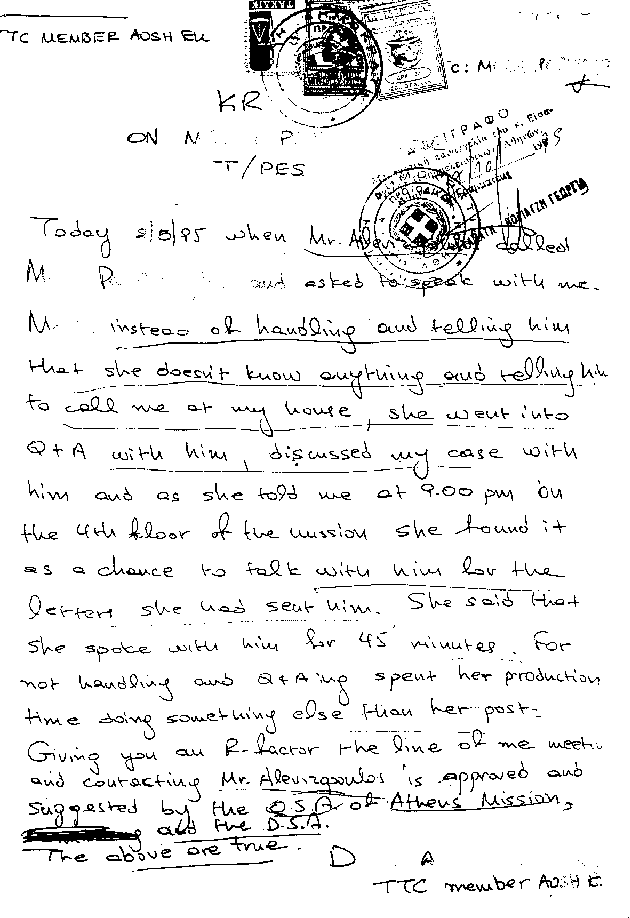 TTC MEMBER AOSH EU
C: M
KR
ON M P.
TT/PES
ΑΝΤΙΓΡΑΦΟ
Today 8/5/95 when Mr. called
M P and asked to speak with me.
M instead of handling and telling him
that she doesn't know anything and telling him
to call me at my house, she went into
Q+A with him, discussed my case with
him and as she told me at 9.00 pm on
the 4th floor of the mission she found it
as a chance to talk with him for the
letters she had sent him. She said that
she spoke with him for 45 minutes. For
not handling and Q+A ing spent her production
time doing something else than her post-
Giving you an R-factor the line of me meet
and contacting Mr. Alevizopoulos is approved and
suggested by the O.S.A of Athens Mission,
and the D.S.A.
The above are true.
D A
TTC member AOSH E.